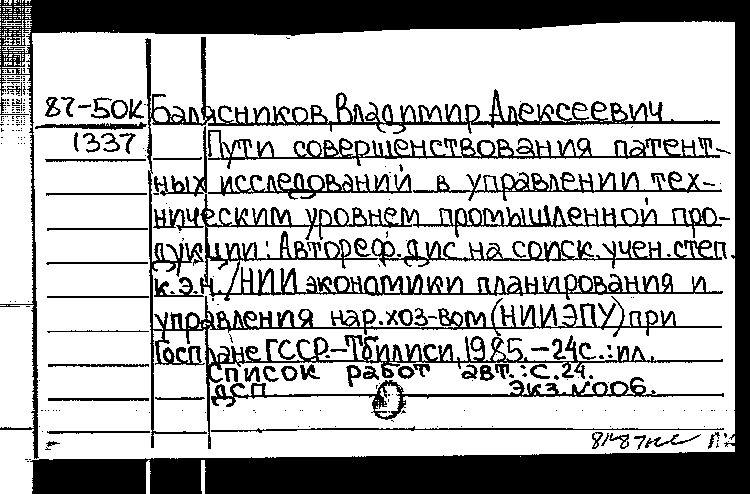 87-50К Балясников, Владимир Алексеевич.
1337 Пути совершенствования патент-
ных исследований в управлении тех-
ническим уровнем промышленной про-
дукции: Автореф. дис. на соиск. учен. степ.
к.э.н. /НИИ экономики планирования и
управления нар. хоз-вом (НИИЭПУ) при
Госплане ГССР.-Тбилиси, 1985.-24с.:ил.
Список работ авт.: с.24.
ДСП Экз.№006.